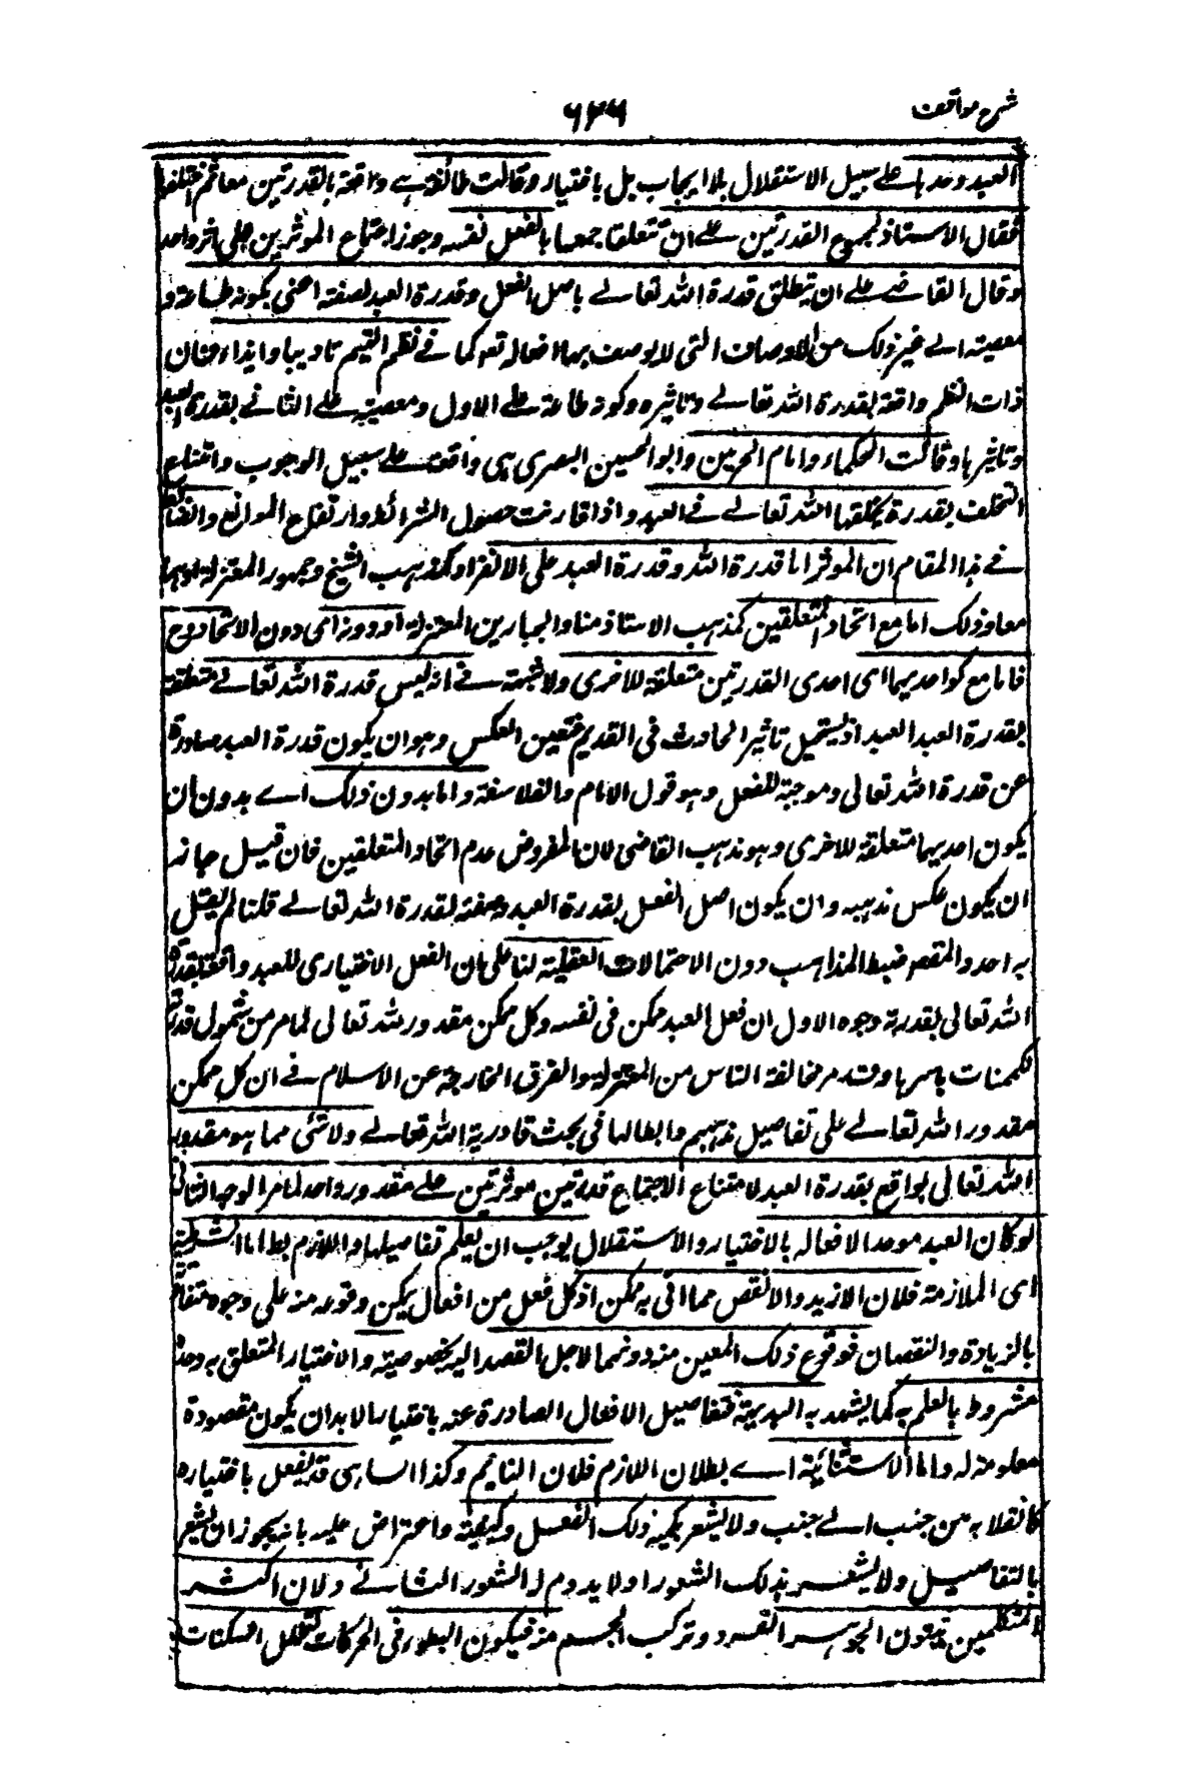 شرح مواقف
٦٢٦
العبد وحدها على سبيل الاستقلال بلا ايجاب بل باختيار وقالت طائفة هى واقعة بالقدرتين معا ثم اختلفوا
فقال الاستاذ بمجموع القدرتين على ان تتعلقا جميعا بالفعل نفسه وجوز اجتماع المؤثرين على اثر واحد
وقال القاضى على ان يتعلق قدرة الله تعالى باصل الفعل وقدرة العبد لصفته اعنى بكونه طاعة و
معصية الى غير ذلك من الاوصاف التى لا يوصف بها افعاله تعه كما فى لطم اليتيم تاديبا وايذاء فان
ذات اللطم واقعة بقدرة الله تعالى وتاثيره وكونه طاعة على الاول ومعصية على الثانى بقدرة العبد
وتاثيرها وقالت الحكماء وامام الحرمين وابو الحسين البصرى هى واقعة على سبيل الوجوب وامتناع
التخلف بقدرة يخلقها الله تعالى فى العبد واذا قارنت حصول الشرائط وارتفاع الموانع والضابط
فى هذا المقام ان المؤثر اما قدرة الله وقدرة العبد على الانفراد كمذهب الشيخ وجمهور المعتزلة او هما
معا وذلك اما مع اتحاد المتعلقين كمذهب الاستاذ منا والنجارين المعتزلة او دونه اى دون الاتحاد وح
فاما مع كون احديهما اى احدى القدرتين متعلقة للاخرى ولا شبهة فى انه ليس قدرة الله تعالى متعلقة
بقدرة العبد العبد اذ يستحيل تاثير الحادث فى القديم فتعين العكس وهو ان يكون قدرة العبد صادرة
عن قدرة الله تعالى وموجبة للفعل وهو قول الامام والفلاسفة واما بدون ذلك اى بدون ان
يكون احديهما متعلقة للاخرى وهو مذهب القاضى لان المفروض عدم اتحاد المتعلقين فان قيل جاز
ان يكون عكس مذهبه وان يكون اصل الفعل بقدرة العبد وصفته بقدرة الله تعالى قلنا لم يقل
به احد والمقصد ضبط المذاهب دون الاحتمالات العقلية لنا على ان الفعل الاختيارى للعبد واقعة بقدرة
الله تعالى بقدرته وجوه الاول ان فعل العبد ممكن فى نفسه وكل ممكن مقدور لله تعالى لما مر من شمول قدرته
للممكنات باسرها وقد مر مخالفة الناس من المعتزلة والفرق الخارجة عن الاسلام فى ان كل ممكن
مقدور الله تعالى على تفاصيل مذهبهم وابطالها فى بحث قادرية الله تعالى ولا شئ مما هو مقدور
الله تعالى بواقع بقدرة العبد لامتناع الاجتماع قدرتين مؤثرتين على مقدور واحد لما مر الوجه الثانى
لو كان العبد موجدا لافعاله بالاختيار والاستقلال يوجب ان يعلم تفاصيلها واللازم بط اما الشرطية
اى الملازمة فلان الازيد والانقص مما اتى به ممكن اذ كل فعل من افعال يمكن وقوعه منه على وجوه متفاوتة
بالزيادة والنقصان فوقوع ذلك المعين منه دونهما لاجل القصد اليه بخصوصيته والاختيار المتعلق به وحده
مشروط بالعلم به كما يشهد به البديهة فتفاصيل الافعال الصادرة عنه باختياره لا بد ان يكون مقصودة
معلومة له واما الاستثنائية اى بطلان اللازم فلان النايم وكذا الساهى قد يفعل باختياره
كانقلابه من جنب الى جنب ولا يشعر بكمية ذلك الفعل وكيفيته واعتراض عليه بانه يجوز ان يشعر
بالتفاصيل ولا يشعر بذلك الشعور او لا يدوم له الشعور الثانى ولان اكثر
المتكلمين يثبتون الجوهر الفرد وتركب الجسم منه فيكون البطوء فى الحركات لتخلل السكنات